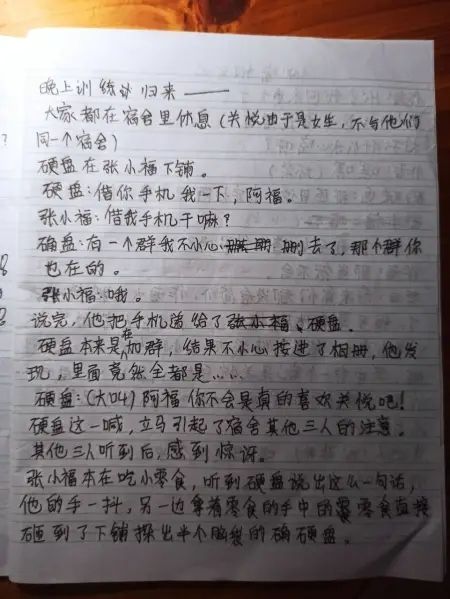 晚上训练必归来——
大家都在宿舍里休息（关悦由于是女生，不与他们
同一个宿舍）
硬盘在张小福下铺。
硬盘：借你手机我一下，阿福。
张小福：借我手机干嘛？
硬盘：有一个群我不小心删去了，那个群你
也在的。
张小福：哦。
说完，他把手机递给了张小福、硬盘。
硬盘本来是在加群，结果不小心按进了相册，他发
现，里面竟然全都是……
硬盘：（大叫）阿福你不会是真的喜欢关悦吧！
硬盘这一喊，立马引起了宿舍其他三人的注意。
其他三人听到后，感到惊讶。
张小福本在吃小零食，听到硬盘说出这么一句话，
他的手一抖，另一边拿着零食的手中的零食直接
砸到了下铺探出半个脑袋的硬盘。